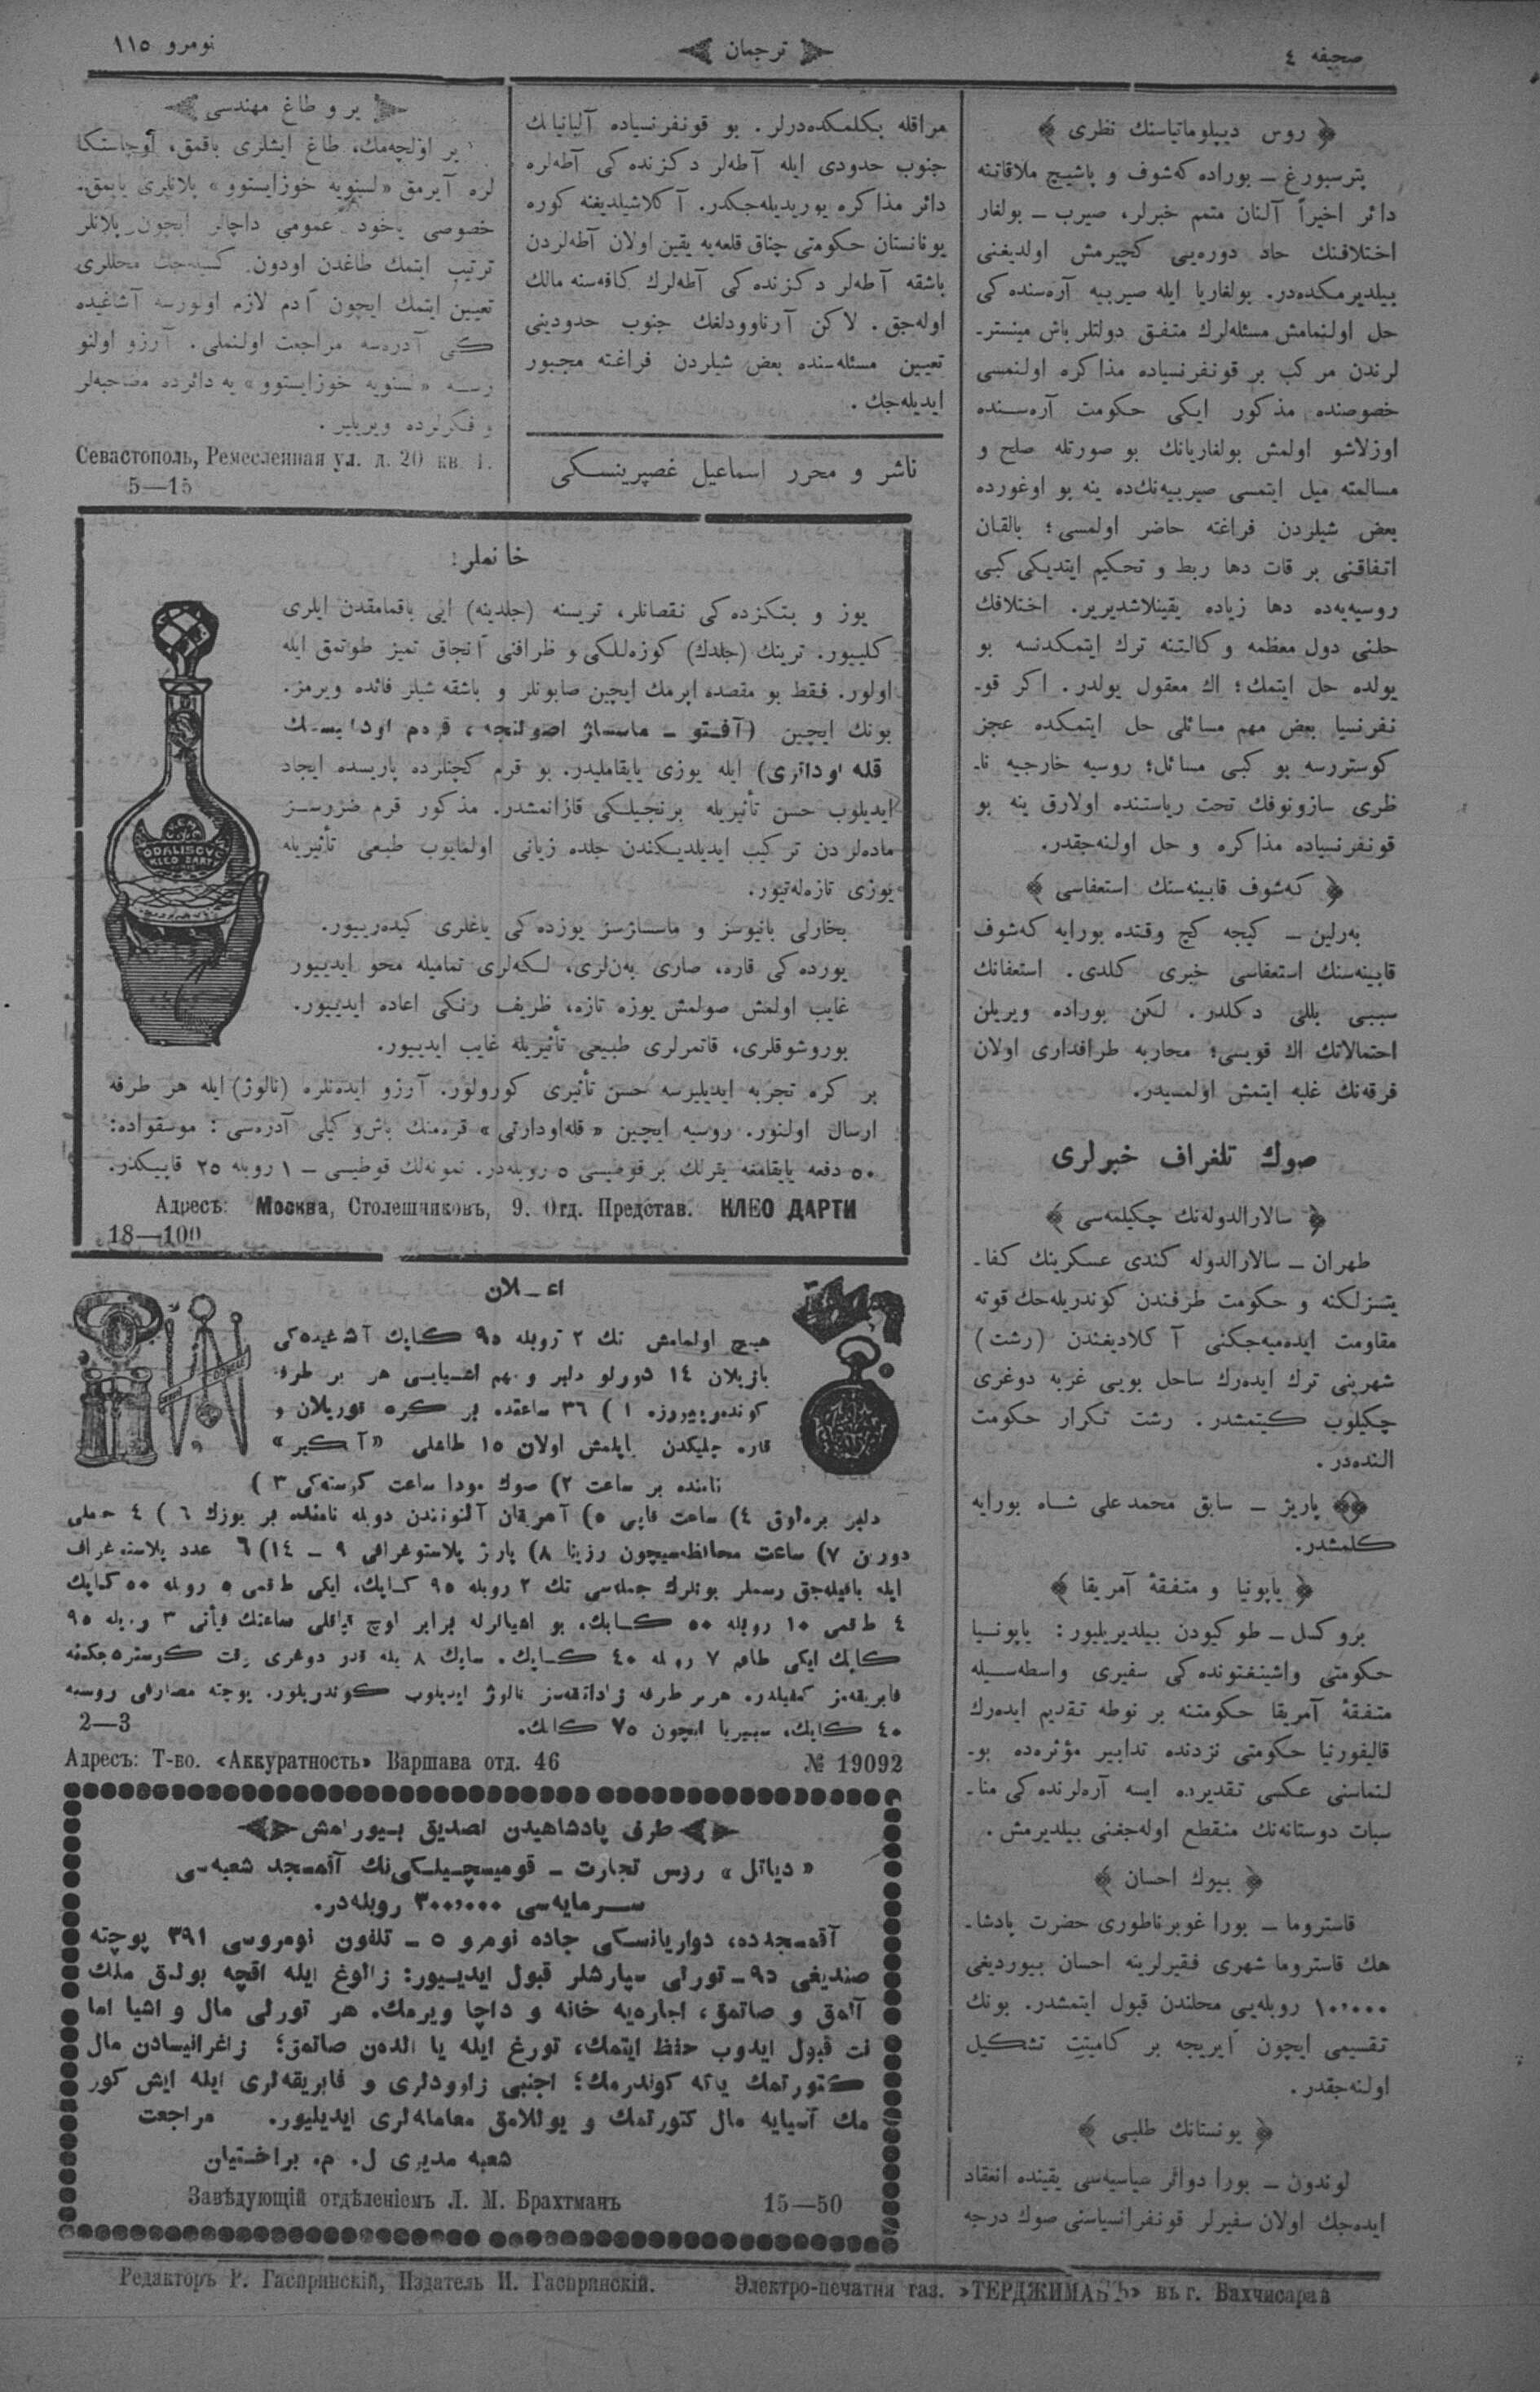 صحیفه ٤
ترجمان
نومرو ١١٥
روس دیپلوماتیاسنك نظری
پترسبورغ ــ بوراده كه‌شوف و پاشیچ ملاقاتنه
دائر اخیراً آلنان متمم خبرلر، صیرب ــ بولغار
اختلافنك حاد دوره‌یی كچیرمش اولدیغنی
بیلدیرمكده‌در. بولغاریا ایله صیربیه آره‌سنده كی
حل اولنمامش مسئله‌لرك متفق دولتلر باش مینستر-
لرندن مركب بر قونفرنسیاده مذاكره اولنمسی
خصوصنده مذكور ایكی حكومت آره‌سنده
اوزلاشو اولمش بولغاریانك بو صورتله صلح و
مسالمته میل ایتمسی صیربیه‌نك‌ده ینه بو اوغورده
بعض شیلردن فراغته حاضر اولمسی؛ بالقان
اتفاقنی بر قات دها ربط و تحكیم ایتدیكی كبی
روسیه‌یه‌ده دها زیاده یقینلاشدیریر. اختلافك
حلنی دول معظمه وكالتنه ترك ایتمكدنسه بو
یولده حل ایتمك؛ اك معقول یولدر. اكر قو-
نفرنسیا بعض مهم مسائلی حل ایتمكده عجز
كوستررسه بو كبی مسائل؛ روسیه خارجیه نا-
ظری سازونوفك تحت ریاستنده اولارق ینه بو
قونفرنسیاده مذاكره و حل اولنه‌جقدر.
كه‌شوف قابینه‌سنك استعفاسی
به‌رلین ــ كیجه كچ وقتده بورایه كه‌شوف
قابینه‌سنك استعفاسی خبری كلدی. استعفانك
سببی بللی دكلدر. لكن بوراده ویریلن
احتمالاتك اك قویسی؛ محاربه طرافداری اولان
فرقه‌نك غلبه ایتمش اولمسیدر.
صوك تلغراف خبرلری
سالارالدوله‌نك چكیلمه‌سی
طهران ــ سالارالدوله كندی عسكرینك كفا-
یتسزلكنه و حكومت طرفندن كوندریله‌جك قوته
مقاومت ایده‌میه‌جكنی آكلادیغندن (رشت)
شهرینی ترك ایده‌رك ساحل بویی غربه دوغری
چكیلوب كیتمشدر. رشت تكرار حكومت
النده‌در.
پاریژ ــ سابق محمد علی شاه بورایه
كلمشدر.
یاپونیا و متفقهٔ آمریقا
بروكسل ــ طوكیودن بیلدیریلیور: یاپونیا
حكومتی واشینغتونده كی سفیری واسطه‌سیله
متفقهٔ آمریقا حكومتنه بر نوطه تقدیم ایده‌رك
قالیفورنیا حكومتی نزدنده تدابیر مؤثره‌ده بو-
لنماسنی عكسی تقدیرده ایسه آره‌لرنده كی منا-
سبات دوستانه‌نك منقطع اوله‌جغنی بیلدیرمش.
بیوك احسان
قاستروما ــ بورا غوبرناطوری حضرت پادشا-
هك قاستروما شهری فقیرلرینه احسان بیوردیغی
١٠٬٠٠٠ روبله‌یی محلندن قبول ایتمشدر. بونك
تقسیمی ایچون آیریجه بر كامیتیت تشكیل
اولنه‌جقدر.
یونستانك طلبی
لوندون ــ بورا دوائر سیاسیه‌سی یقینده انعقاد
ایده‌جك اولان سفیرلر قونفرانسیاسنی صوك درجه
مراقله بكلمكده‌درلر. بو قونفرنسیاده آلبانیانك
جنوب حدودی ایله آطه‌لر دكزنده كی آطه‌لره
دائر مذاكره یوریدیله‌جكدر. آكلاشیلدیغنه كوره
یونانستان حكومتی چناق قلعه‌یه یقین اولان آطه‌لردن
باشقه آطه‌لر دكزنده كی آطه‌لرك كافه‌سنه مالك
اوله‌جق. لاكن آرناوودلغك جنوب حدودینی
تعیین مسئله‌سنده بعض شیلردن فراغته مجبور
ایدیله‌جك.
ناشر و محرر اسماعیل غصپرینسكی
یر و طاغ مهندسی
یر اولچه‌مك، طاغ ایشلری باقمق، اوچاستكا
لره آیرمق «لسنویه خوزایستوو» پلانلری یاپمق.
خصوصی یاخود عمومی داچالر ایچون پلانلر
ترتیب ایتمك طاغدن اودون كسیله‌جك محللری
تعیین ایتمك ایچون آدم لازم اولورسه آشاغیده
كی آدره‌سه مراجعت اولنملی. آرزو اولنو
رسه «لسنویه خوزایستوو» یه دائرده مصاحبه‌لر
و فكرلرده ویریلیر.
Севастополь, Ремесленная ул. д. 20 кв. 1.
5—15
خانملر:
یوز و بتكزده كی نقصانلر، تریسنه (جلدینه) ایی باقمامقدن ایلری
كلییور. ترینك (جلدك) كوزه‌للكی و ظرافتی آنجاق تمیز طوتمق ایله
اولور. فقط بو مقصده ایرمك ایچین صابونلر و باشقه شیلر فائده ویرمز.
بونك ایچین
قله‌اوداتری) ایله یوزی یایقاملیدر. بو قرم كچنلرده پاریسده ایجاد
ایدیلوب حسن تأثیریله برنجیلكی قازانمشدر. مذكور قرم ضررسز
ماده‌لردن تركیب ایدیلدیكندن جلده زیانی اولمایوب طبیعی تأثیریله
یوزی تازه‌له‌تیور.
بخارلی بانیوسز و ماسساژسز یوزده كی یاغلری كیده‌رییور.
یورده كی قاره، صاری به‌نلری، لكه‌لری تمامیله محو ایدییور
غایب اولمش صولمش یوزه تازه، ظریف رنكی اعاده ایدییور.
بوروشوقلری، قاتمرلری طبیعی تأثیریله غایب ایدییور.
بر كره تجربه ایدیلیرسه حسن تأثیری كورولور. آرزو ایده‌نلره (نالوژ) ایله هر طرفه
ارسال اولنور. روسیه ایچین «قله‌اودارتی» قره‌منك باش وكیلی آدره‌سی: موسقواده:
٥٠ دفعه یایقامغه یترلك بر قوطیسی ٥ روبله‌در. نمونه‌لك قوطیسی ــ ١ روبله ٢٥ قاپیكدر.
Адресъ: Москва, Столешниковъ, 9. Отд. Представ. КЛЕО ДАРТИ
18—100
اعـلان
هیچ اولمامش تك ٢ روبله ٩٥ كاپك آشاغیده كی
یازیلان ١٤ دورلو دلبر و مهم اشیایی هر بر طرفه
ساعقده بر كره قوریلان و
قاره چلیكدن یاپلمش اولان ١٥ طاشلی «آكبر»
نامنده بر ساعت ٢) صوك مودا ساعت كوسته‌كی ٣)
٤) ساعت قابی ٥) آمریقان آلتونندن دوبله نامنده بر یوزك ٦) ٤
دوربن ٧) ساعت محافظه‌سیچون رزینا ٨) پارژ پلاستوغرافی ٩ ــ ١٤) ٦ عدد پلاستوغراف
ایله باقیله‌جق رسملر بونلرك جمله‌سی تك ٢ روبله ٩٥ كاپك، ایكی طقمی ٥ روبله ٥٥ كاپك
٤ طقمی ١٠ روبله ٥٥ كاپك، بو اشیالرله برابر اوچ قپاقلی ساعتك فیأتی ٣ روبله ٩٥
كاپك ایكی طاقم ٧ روبله ٤٠ كاپك.
٤٠ كاپك، سیبیریا ایچون ٧٥ كاپك.
2—3
Адресъ: Т-во. «Аккуратность» Варшава отд. 46 № 19092
طرف پادشاهیدن تصدیق بیورلمش
«دیاتل» روس تجارت ــ قومیسچیلكی‌نك آقمسجد شعبه‌سی
سرمایه‌سی ٣٠٠٬٠٠٠ روبله‌در.
آقمسجدده، دواریانسكی جاده نومرو ٥ ــ تلفون نومروسی ٣٩١ پوچته
صندیغی ٩٥ ــ تورلی سپارشلر قبول ایدییور: زالوغ ایله اقچه بولدق ملك
آلمق و صاتمق، اجاره‌یه خانه و داچا ویرمك. هر تورلی مال و اشیا اما
نت قبول ایدوب حفظ ایتمك، تورغ ایله یا الدن صاتمق؛ زاغرانیسادن مال
كتورتمك یاكه كوندرمك؛ اجنبی زاوودلری و فابریقه‌لری ایله ایش كور
مك آسیایه مال كتورتمك و یوللامق معامله‌لری ایدیلیور. مراجعت
شعبه مدیری ل. م. براختمان
Завѣдующій отдѣленіемъ Л. М. Брахтманъ
15—50
Редакторъ Р. Гаспринскій, Издатель И. Гаспринскій.
Электро-печатня газ. »ТЕРДЖИМАНЪ» въ г. Бахчисараѣ